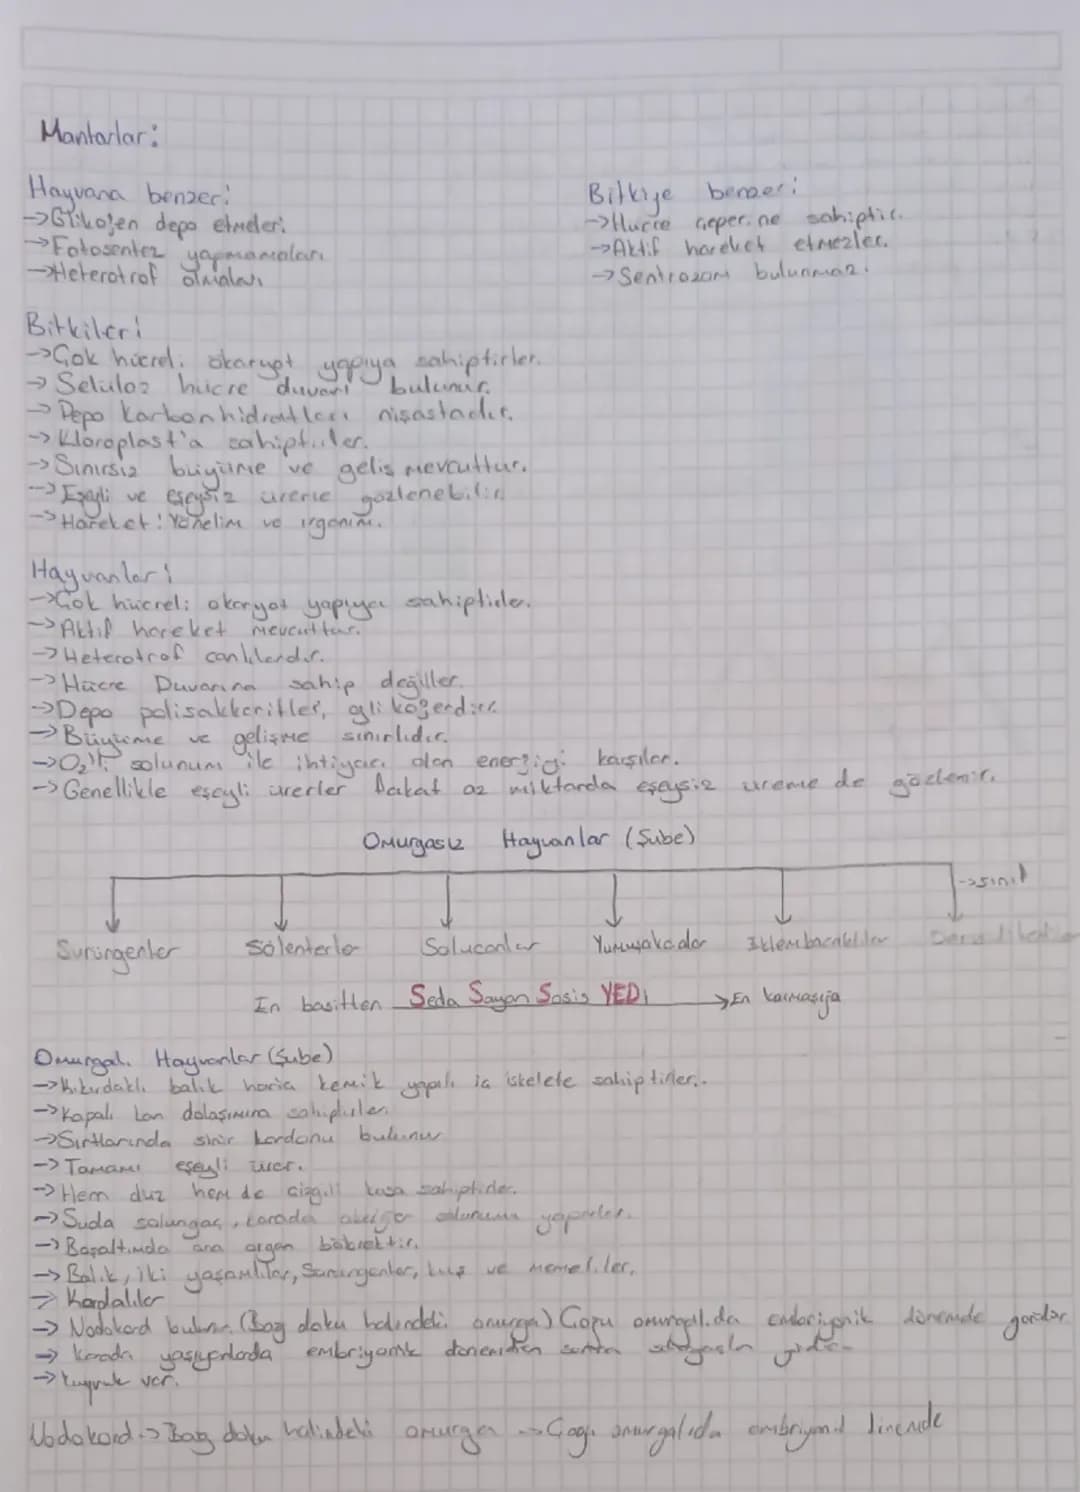 Mantarlar:
Hayvana benzer:
→Glikojen depo etmeleri
→Fotosentez yapmamaları
→Heterotrof olmaları
Bitkiye benzer:
→Hücre çeperine sahiptir.
→Aktif hareket etmezler.
→Sentrozom bulunmaz.
Bitkiler:
→Çok hücreli ökaryot yapıya sahiptirler.
→Selüloz hücre duvarı bulunur.
→Depo karbonhidratları nişastadır.
→Kloroplast'a sahiptirler.
→Sınırsız büyüme ve geliş mevcuttur.
→Eşeyli ve eşeysiz üreme gözlenebilir.
→Hareket: Yönelim ve ırganım.
Hayvanlar:
→Çok hücreli ökaryot yapıya sahiptirler.
→Aktif hareket mevcuttur.
→Heterotrof canlılardır.
→Hücre Duvarına sahip değiller.
→Depo polisakkaritler, glikojendir.
→Büyüme ve gelişme sınırlıdır.
→O₂'li solunum ile ihtiyacı olan enerjiyi karşılar.
→Genellikle eşeyli ürerler fakat az miktarda eşeysiz üreme de gözlenir.
Omurgasız Hayvanlar (Şube)
→sınıf
Sürüngenler Sölenterler Solucanlar Yumuşakcalar Eklembacaklılar Derisidikenliler
En basitten Seda Sayan Sosis YEDİ → En karmaşığa
Omurgalı Hayvanlar (Şube)
→Kıkırdaklı balık hariç kemik yapılı iç iskelete sahiptirler.
→Kapalı kan dolaşımına sahiptirler
→Sırtlarında sinir kordonu bulunur
→Tamamı eşeyli ürer.
→Hem düz hem de çizgili kasa sahiptirler.
→Suda solungaç, karada akciğer solunumu yaparlar.
→Boşaltımda ana organ böbrektir.
→Balık, iki yaşamlılar, Sürüngenler, kuş ve memeliler.
→Kordalılar
→Notokord bulunur. (Bağ doku halindeki omurga) Çoğu omurgalıda embriyonik dönemde görülür
→Karada yaşayanlarda embriyonik dönemden sonra
→kuyruk var.
Nodokord → Bağ doku halindeki omurga → Çoğu omurgalıda embriyonil dönemde